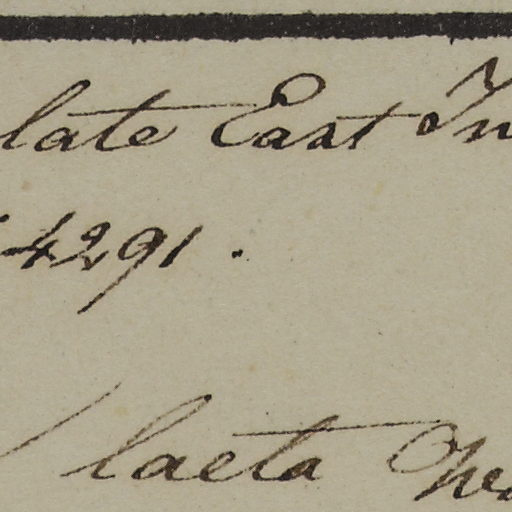 late East In
4291.
laeta